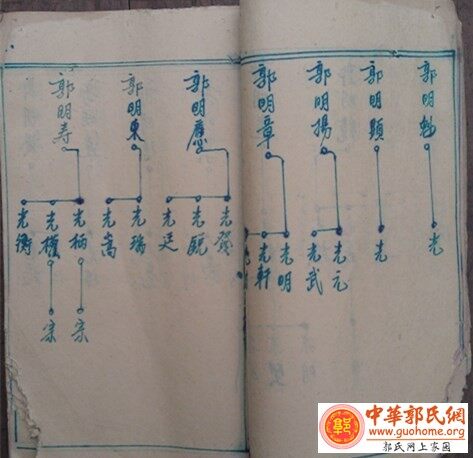 郭明勉
郭明顕
郭明揚
郭明章
郭明應
郭明東
郭明寿
光
光
光元
光武
光明
光軒
光發
光熙
光廷
光瑞
光嵩
光柄
光權
光衡
宗
宗
中華郭氏網
www.guohome.org
郭氏网上家園